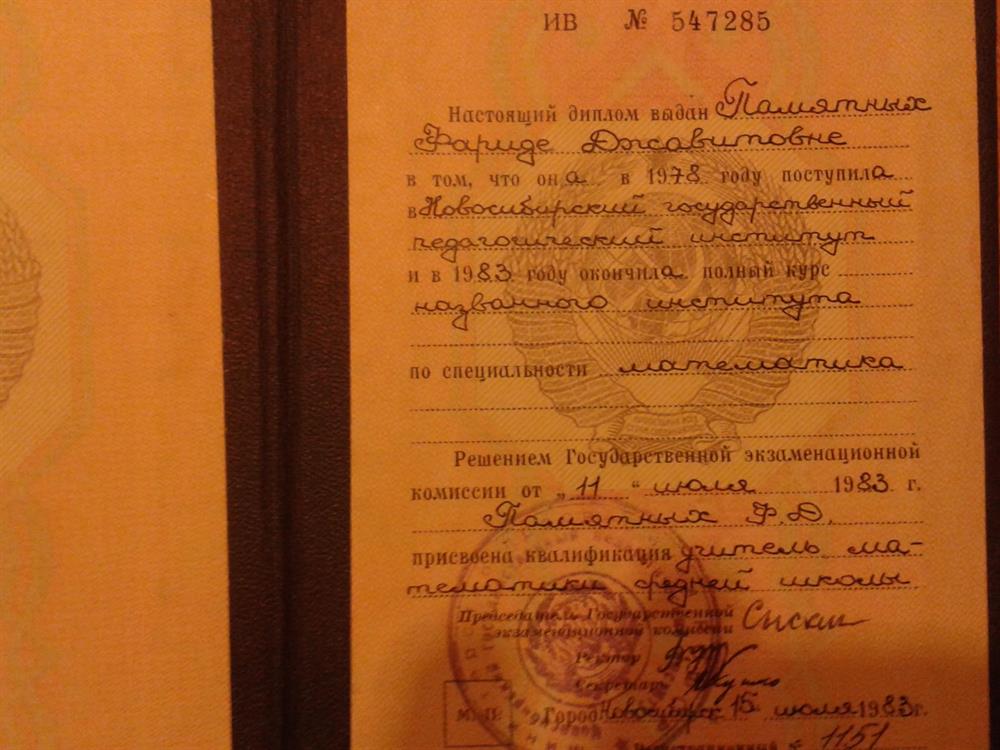 ИВ № 547285
Настоящий диплом выдан Памятных
Фариде Джавитовне
в том, что она в 1978 году поступила
в Новосибирский государственный
педагогический институт
и в 1983 году окончила полный курс
названного института
по специальности математика
Решением Государственной экзаменационной
комиссии от „11“ июля 1983 г.
Памятных Ф. Д.
присвоена квалификация учитель ма-
тематики средней школы
Председатель Государственной
экзаменационной комиссии
Ректор
Секретарь
М. П. Город Новосибирск 15 июля 1983 г.
1151